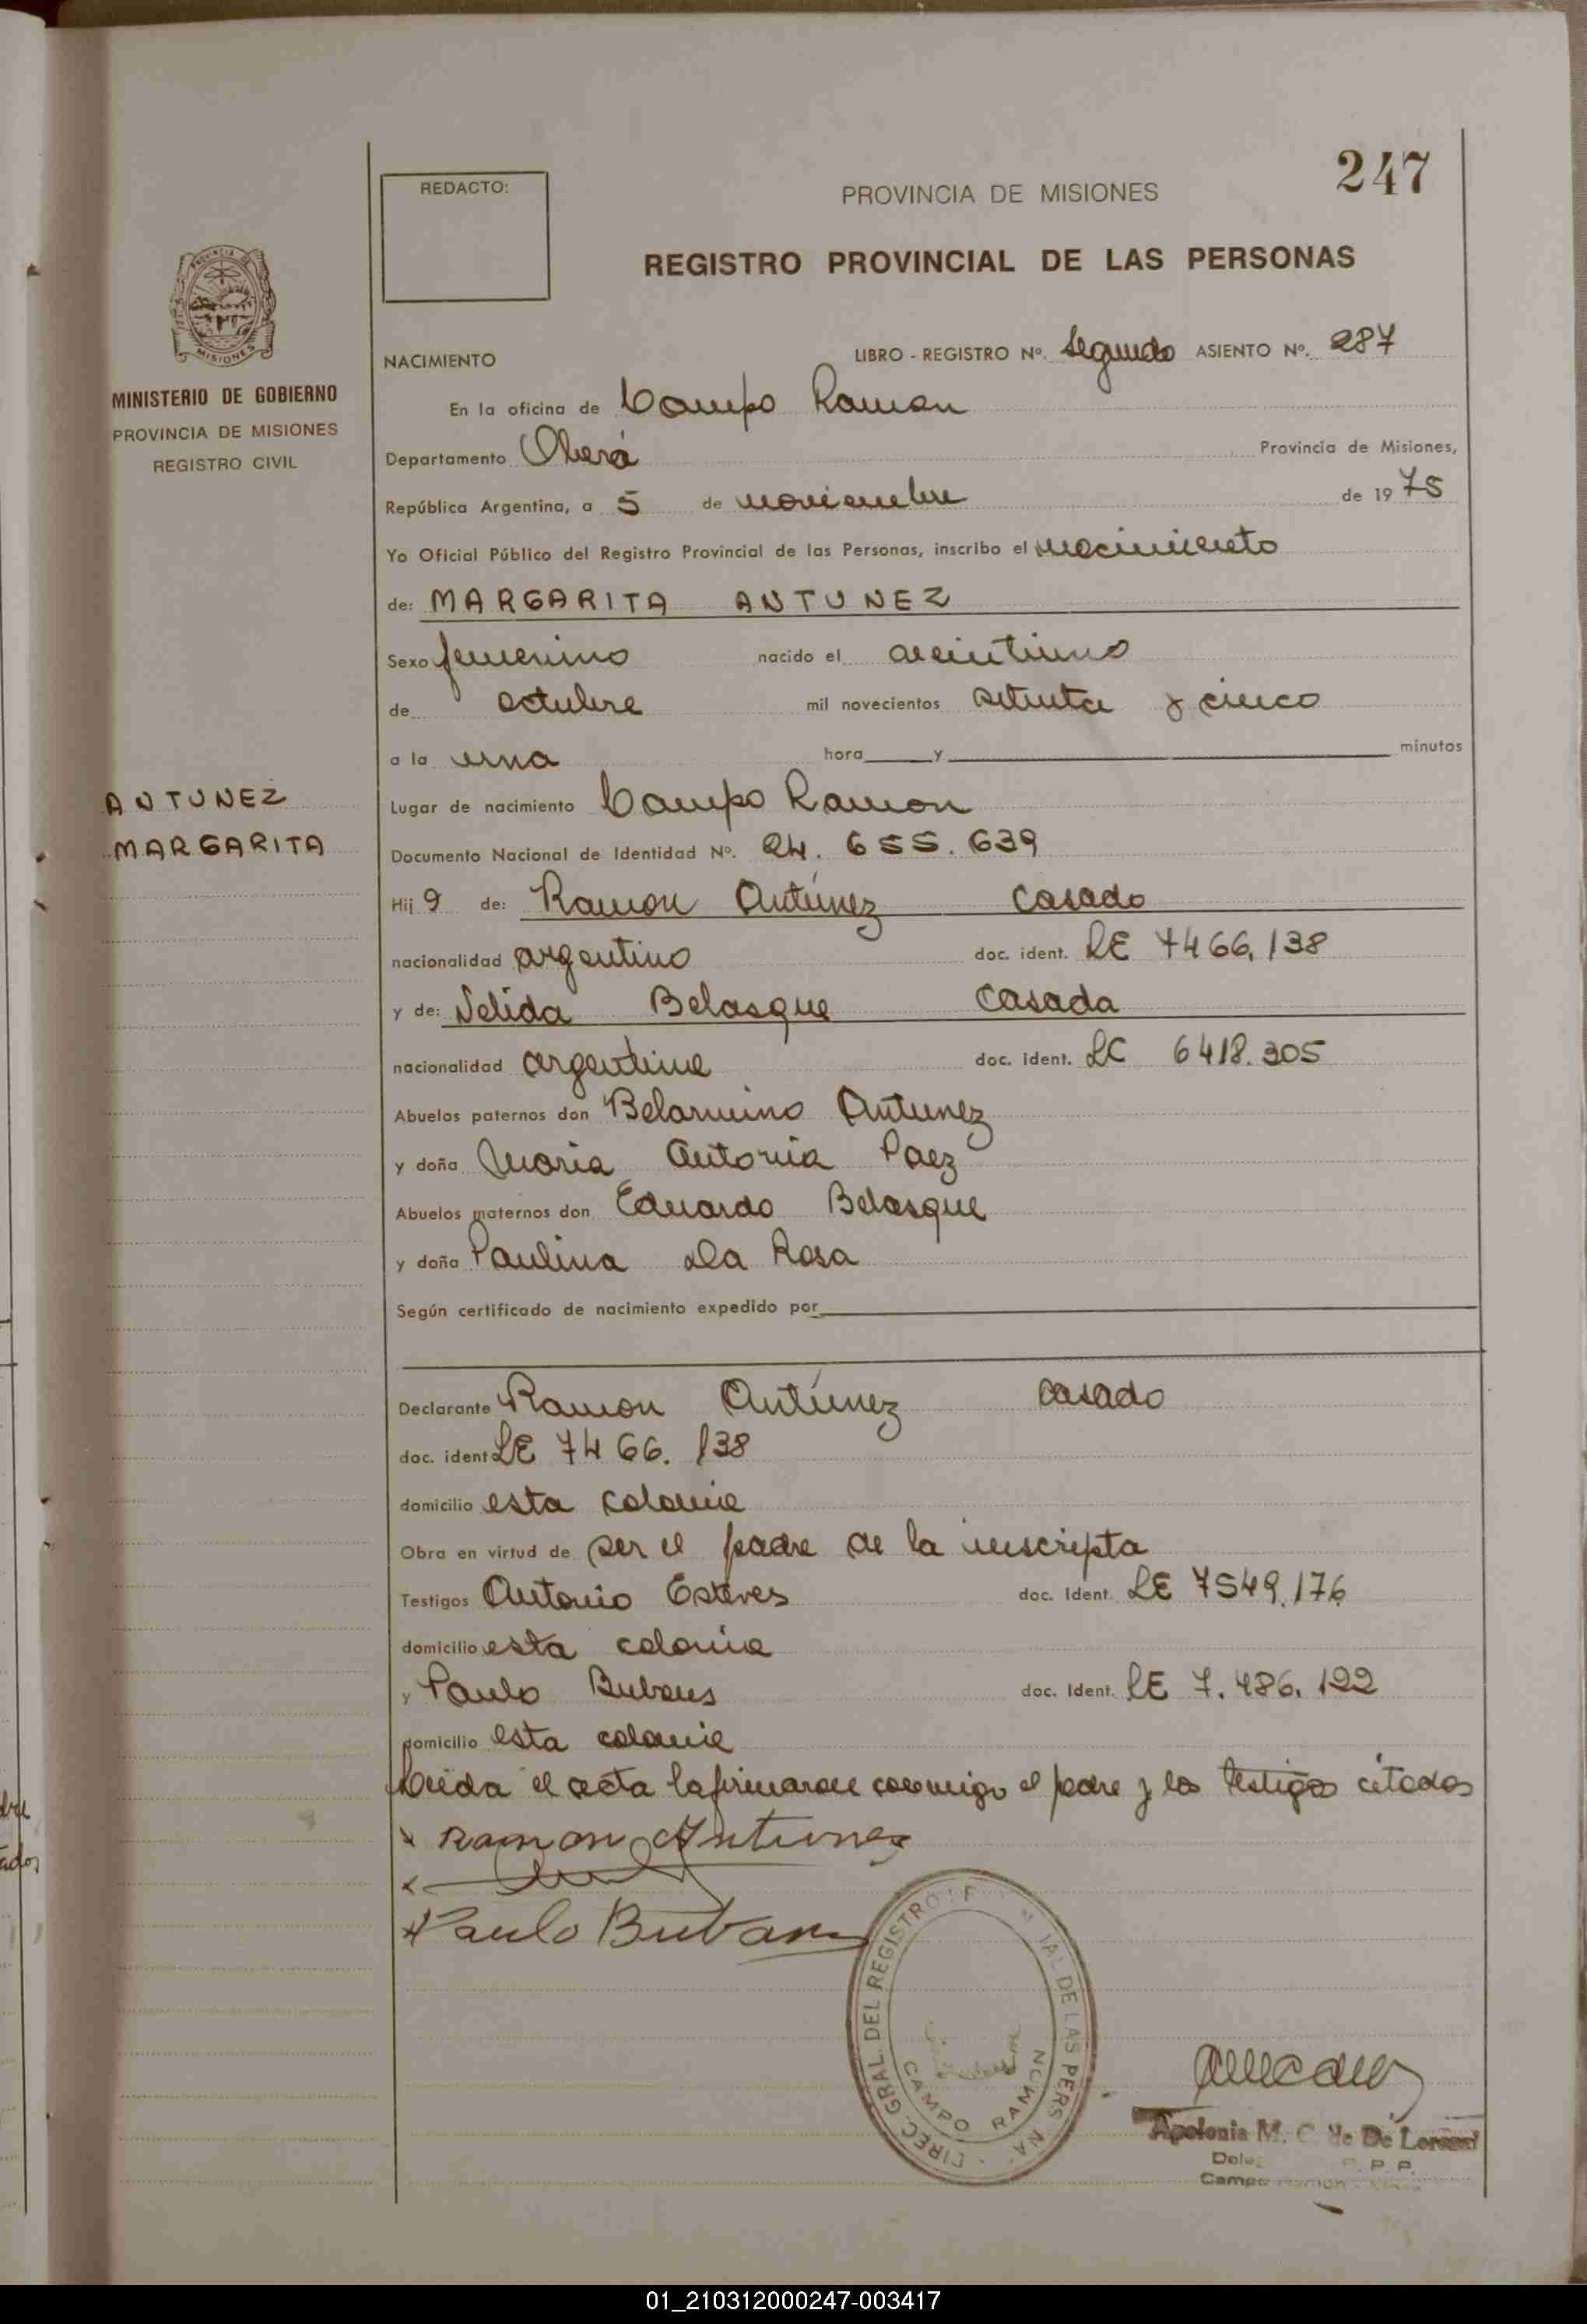 247
REDACTO:
PROVINCIA DE MISIONES
REGISTRO PROVINCIAL DE LAS PERSONAS
MISIONES
MINISTERIO DE GOBIERNO
PROVINCIA DE MISIONES
REGISTRO CIVIL
NACIMIENTO LIBRO - REGISTRO Nº. Segundo ASIENTO Nº. 287
En la oficina de Campo Ramon
Departamento Oberá Provincia de Misiones,
República Argentina, a 5 de noviembre de 1975
Yo Oficial Público del Registro Provincial de las Personas, inscribo el nacimiento
de: MARGARITA ANTUNEZ
Sexo femenino nacido el veintiuno
de octubre mil novecientos setenta y cinco
a la una hora y minutos
ANTUNEZ
MARGARITA
Lugar de nacimiento Campo Ramon
Documento Nacional de Identidad Nº. 24.655.639
Hij a de: Ramon Antúnez casado
nacionalidad argentino doc. ident. LE 7466.138
y de: Nelida Belasque casada
nacionalidad argentina doc. ident. LC 6418.305
Abuelos paternos don Belarmino Antunez
y doña Maria Antonia Paez
Abuelos maternos don Eduardo Belasque
y doña Paulina Da Rosa
Según certificado de nacimiento expedido por
Declarante Ramon Antúnez casado
doc. ident. LE 7466.138
domicilio esta colonia
Obra en virtud de ser el padre de la inscripta
Testigos Antonio Esteves doc. Ident. LE 7549.176
domicilio esta colonia
y Paulo Bubans doc. Ident. LE 7.486.122
domicilio esta colonia
Leida el acta la firmaron conmigo el padre y los testigos citados
Ramon Antunez
Paulo Bubans
DIREC. GRAL. DEL REGISTRO DE LAS PERS
CAMPO RAMON
Apolonia M. C. de De Lorenzi
Campo Ramon
01_210312000247-003417